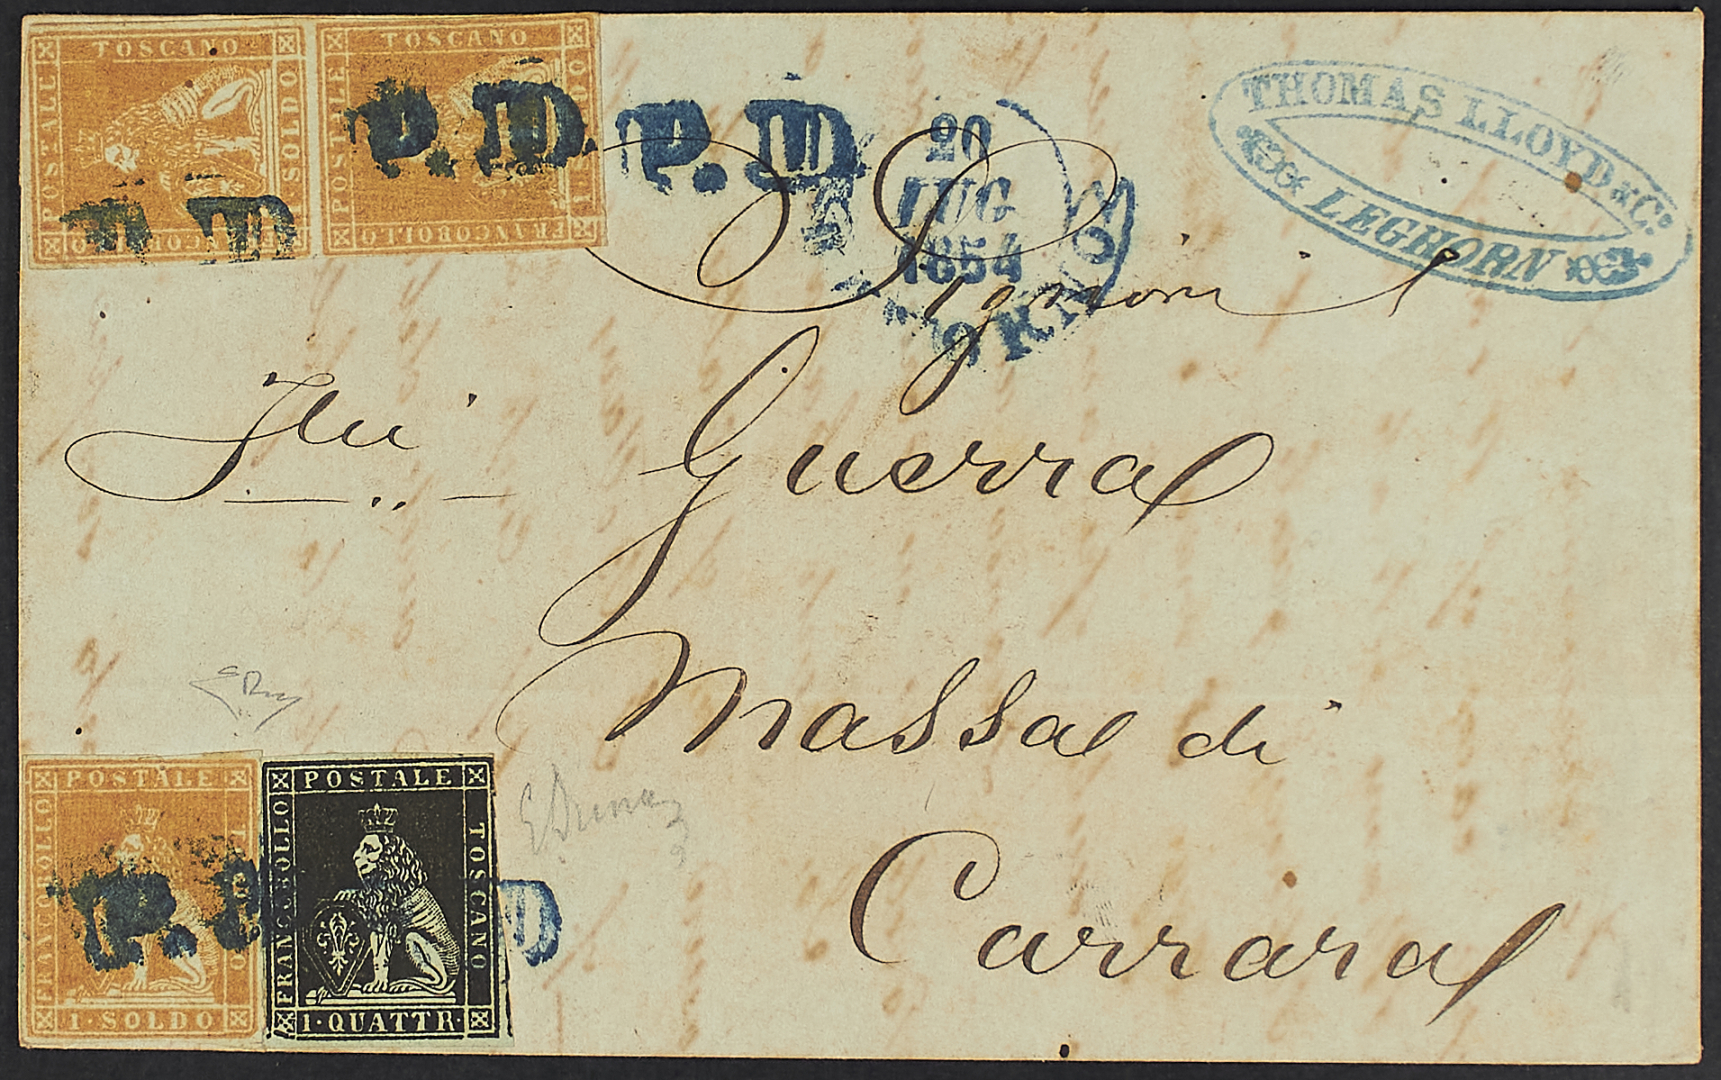 TOSCANO
POSTALE
1 SOLDO
FRANCOBOLLO
TOSCANO
POSTALE
1 SOLDO
FRANCOBOLLO
P. D.
P. D.
P. D.
20
LUG
1854
LIVORNO
THOMAS LLOYD & Co.
LEGHORN
Signori
Guerra
Massa di
Carrara
POSTALE
FRANCOBOLLO
TOSCANO
1 · SOLDO
P. D
POSTALE
FRANCOBOLLO
TOSCANO
1 · QUATTR ·